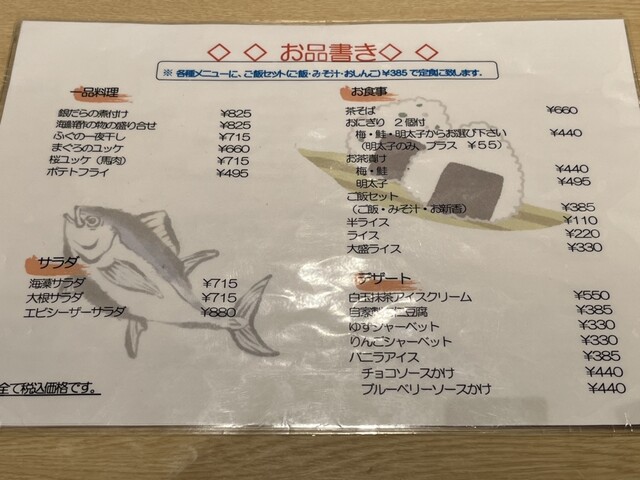 お品書き
※ 各種メニューに、ご飯セット(ご飯・みそ汁・おしんこ)¥385で定食に致します。
一品料理
銀だらの煮付け ¥825
の物の盛り合せ ¥825
ふぐの一夜干し ¥715
まぐろのユッケ ¥660
桜ユッケ(馬肉) ¥715
ポテトフライ ¥495
サラダ
海藻サラダ ¥715
大根サラダ ¥715
エビシーザーサラダ ¥880
全て税込価格です。
お食事
茶そば ¥660
おにぎり 2個付
梅・鮭・明太子からお選び下さい ¥440
(明太子のみ、プラス ¥55)
お茶漬け
梅・鮭 ¥440
明太子 ¥495
ご飯セット
(ご飯・みそ汁・お新香) ¥385
半ライス ¥110
ライス ¥220
大盛ライス ¥330
デザート
白玉抹茶アイスクリーム ¥550
自家製 豆腐 ¥385
ゆずシャーベット ¥330
りんごシャーベット ¥330
バニラアイス ¥385
チョコソースかけ ¥440
ブルーベリーソースかけ ¥440